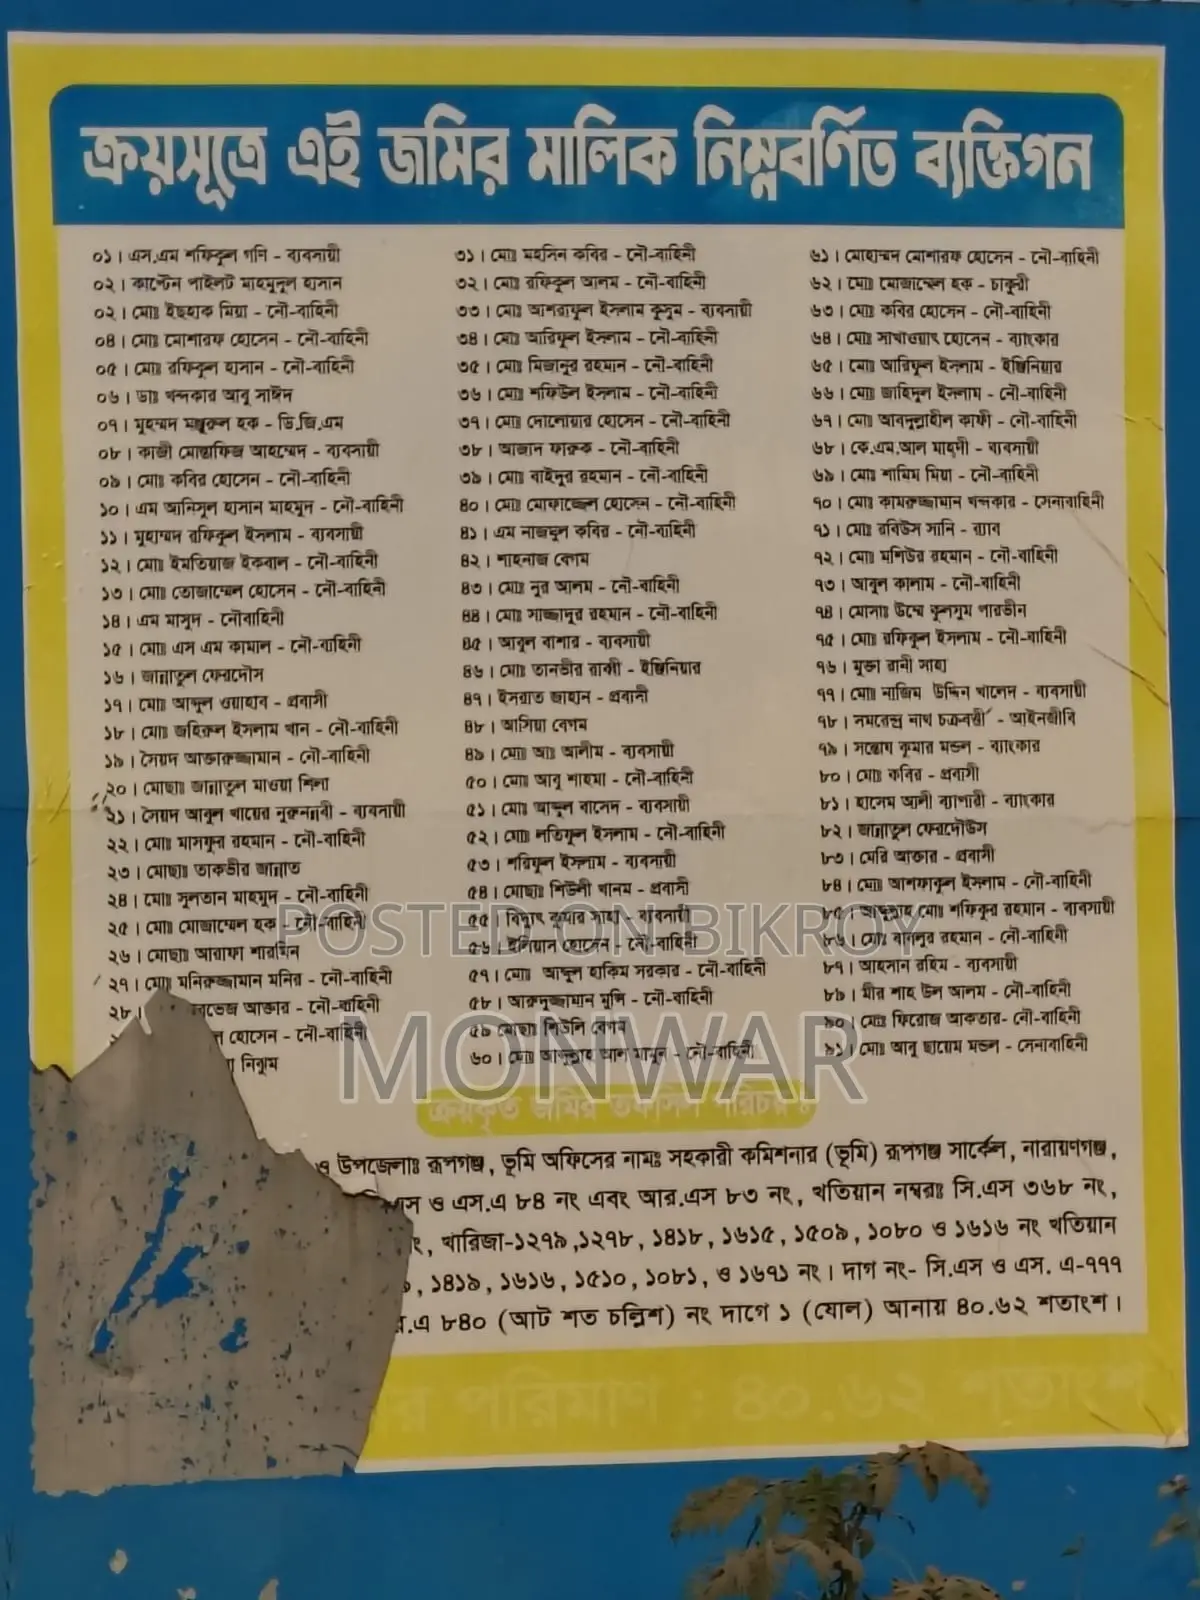 ক্রয়সূত্রে এই জমির মালিক নিম্নবর্ণিত ব্যক্তিগন
০১। এস.এম শফিকুল গণি - ব্যবসায়ী
০২। কাপ্টেন পাইলট মাহমুদুল হাসান
০২। মোঃ ইছহাক মিয়া - নৌ-বাহিনী
০৪। মোঃ মোশারফ হোসেন - নৌ-বাহিনী
০৫। মোঃ রফিকুল হাসান - নৌ-বাহিনী
০৬। ডাঃ খন্দকার আবু সাঈদ
০৭। মুহম্মদ মঞ্জুরুল হক - ডি.জি.এম
০৮। কাজী মোস্তাফিজ আহম্মেদ - ব্যবসায়ী
০৯। মোঃ কবির হোসেন - নৌ-বাহিনী
১০। এম আনিসুল হাসান মাহমুদ - নৌ-বাহিনী
১১। মুহাম্মদ রফিকুল ইসলাম - ব্যবসায়ী
১২। মোঃ ইমতিয়াজ ইকবাল - নৌ-বাহিনী
১৩। মোঃ তোজাম্মেল হোসেন - নৌ-বাহিনী
১৪। এম মাসুদ - নৌবাহিনী
১৫। মোঃ এস এম কামাল - নৌ-বাহিনী
১৬। জান্নাতুল ফেরদৌস
১৭। মোঃ আব্দুল ওয়াহাব - প্রবাসী
১৮। মোঃ জহিরুল ইসলাম খান - নৌ-বাহিনী
১৯। সৈয়দ আক্তারুজ্জামান - নৌ-বাহিনী
২০। মোছাঃ জান্নাতুল মাওয়া শিলা
২১। সৈয়দ আবুল খায়ের নুরুনবী - ব্যবসায়ী
২২। মোঃ মাসফুর রহমান - নৌ-বাহিনী
২৩। মোছাঃ তাকভীর জান্নাত
২৪। মোঃ সুলতান মাহমুদ - নৌ-বাহিনী
২৫। মোঃ মোজাম্মেল হক - নৌ-বাহিনী
২৬। মোছাঃ আরাফা শারমিন
২৭। মোঃ মনিরুজ্জামান মনির - নৌ-বাহিনী
২৮। আক্তার - নৌ-বাহিনী
হোসেন - নৌ-বাহিনী
নিঝুম
৩১। মোঃ মহসিন কবির - নৌ-বাহিনী
৩২। মোঃ রফিকুল আলম - নৌ-বাহিনী
৩৩। মোঃ আশরাফুল ইসলাম কুসুম - ব্যবসায়ী
৩৪। মোঃ আরিফুল ইসলাম - নৌ-বাহিনী
৩৫। মোঃ মিজানুর রহমান - নৌ-বাহিনী
৩৬। মোঃ শফিউল ইসলাম - নৌ-বাহিনী
৩৭। মোঃ দেলোয়ার হোসেন - নৌ-বাহিনী
৩৮। আজাদ ফারুক - নৌ-বাহিনী
৩৯। মোঃ বাইদুর রহমান - নৌ-বাহিনী
৪০। মোঃ মোফাজ্জেল হোসেন - নৌ-বাহিনী
৪১। এম নাজমুল কবির - নৌ-বাহিনী
৪২। শাহনাজ বেগম
৪৩। মোঃ নুর আলম - নৌ-বাহিনী
৪৪। মোঃ সাজ্জাদুর রহমান - নৌ-বাহিনী
৪৫। আবুল বাশার - ব্যবসায়ী
৪৬। মোঃ তানভীর রাব্বী - ইঞ্জিনিয়ার
৪৭। ইসরাত জাহান - প্রবাসী
৪৮। আসিয়া বেগম
৪৯। মোঃ আঃ আলীম - ব্যবসায়ী
৫০। মোঃ আবু শাহমা - নৌ-বাহিনী
৫১। মোঃ আব্দুল বাসেদ - ব্যবসায়ী
৫২। মোঃ লতিফুল ইসলাম - নৌ-বাহিনী
৫৩। শরিফুল ইসলাম - ব্যবসায়ী
৫৪। মোছাঃ শিউলী খানম - প্রবাসী
৫৫। বিদ্যুৎ কুমার সাহা - ব্যবসায়ী
৫৬। ইলিয়াস হোসেন - নৌ-বাহিনী
৫৭। মোঃ আব্দুল হাকিম সরকার - নৌ-বাহিনী
৫৮। আরুদুজ্জামান মুন্সি - নৌ-বাহিনী
৫৯ মোছাঃ শিউলি বেগম
৬০। মোঃ আব্দুল্লাহ আল মামুন - নৌ-বাহিনী
৬১। মোহাম্মদ মোশারফ হোসেন - নৌ-বাহিনী
৬২। মোঃ মোজাম্মেল হক - চাকুরী
৬৩। মোঃ কবির হোসেন - নৌ-বাহিনী
৬৪। মোঃ সাখাওয়াৎ হোসেন - ব্যাংকার
৬৫। মোঃ আরিফুল ইসলাম - ইঞ্জিনিয়ার
৬৬। মোঃ জাহিদুল ইসলাম - নৌ-বাহিনী
৬৭। মোঃ আবদুল্লাহীল কাফী - নৌ-বাহিনী
৬৮। কে.এম.আল মাহদী - ব্যবসায়ী
৬৯। মোঃ শামিম মিয়া - নৌ-বাহিনী
৭০। মোঃ কামরুজ্জামান খন্দকার - সেনাবাহিনী
৭১। মোঃ রবিউস সানি - র‍্যাব
৭২। মোঃ মশিউর রহমান - নৌ-বাহিনী
৭৩। আবুল কালাম - নৌ-বাহিনী
৭৪। মোসাঃ উম্মে কুলসুম পারভীন
৭৫। মোঃ রফিকুল ইসলাম - নৌ-বাহিনী
৭৬। মুক্তা রানী সাহা
৭৭। মোঃ নাজিম উদ্দিন খালেদ - ব্যবসায়ী
৭৮। সমরেন্দ্র নাথ চক্রবর্ত্তী - আইনজীবি
৭৯। সন্তোষ কুমার মন্ডল - ব্যাংকার
৮০। মোঃ কবির - প্রবাসী
৮১। হাসেম আলী ব্যাপারী - ব্যাংকার
৮২। জান্নাতুল ফেরদৌউস
৮৩। মেরি আক্তার - প্রবাসী
৮৪। মোঃ আশফাকুল ইসলাম - নৌ-বাহিনী
৮৫। আব্দুল্লাহ মোঃ শফিকুর রহমান - ব্যবসায়ী
৮৬। মোঃ বাদলুর রহমান - নৌ-বাহিনী
৮৭। আহসান রহিম - ব্যবসায়ী
৮৯। মীর শাহ উল আলম - নৌ-বাহিনী
৯০। মোঃ ফিরোজ আকতার- নৌ-বাহিনী
৯১। মোঃ আবু ছায়েম মন্ডল - সেনাবাহিনী
POSTED ON BIKROY
MONWAR
ক্রয়কৃত জমির তফসিল পরিচয় ঃ
ও উপজেলাঃ রূপগঞ্জ, ভূমি অফিসের নামঃ সহকারী কমিশনার (ভূমি) রূপগঞ্জ সার্কেল, নারায়ণগঞ্জ,
এস ও এস.এ ৮৪ নং এবং আর.এস ৮৩ নং, খতিয়ান নম্বরঃ সি.এস ৩৬৮ নং,
নং, খারিজা-১২৭৯,১২৭৮, ১৪১৮, ১৬১৫, ১৫০৯, ১০৮০ ও ১৬১৬ নং খতিয়ান
, ১৪১৯, ১৬১৬, ১৫১০, ১০৮১, ও ১৬৭১ নং। দাগ নং- সি.এস ও এস. এ-৭৭৭
.এ ৮৪০ (আট শত চল্লিশ) নং দাগে ১ (ষোল) আনায় ৪০.৬২ শতাংশ।
র পরিমাণ : ৪০.৬২ শতাংশ